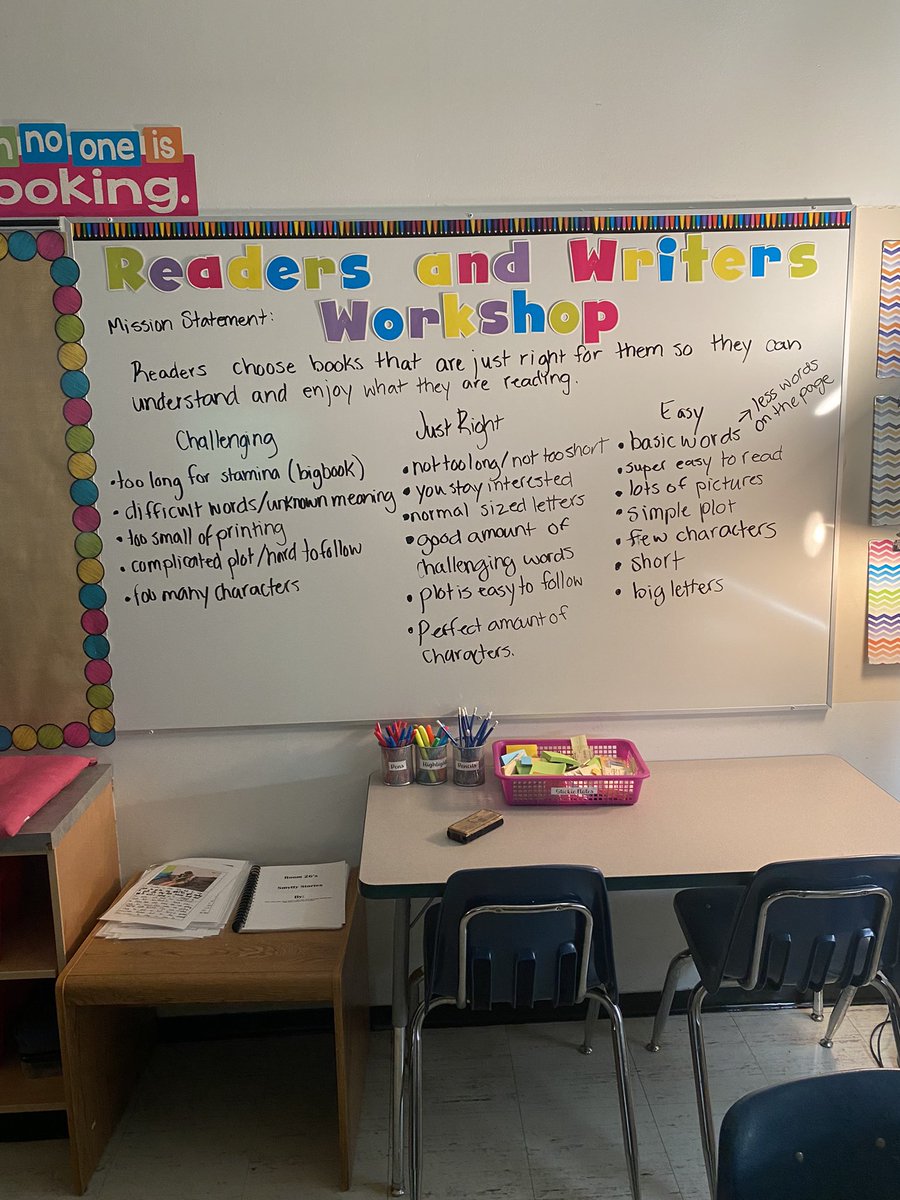 no one is
ooking.
Readers and Writers
Workshop
Mission Statement:
Readers choose books that are just right for them so they can
understand and enjoy what they are reading.
Challenging
•too long for stamina (big book)
• difficult words/unknown meaning
• too small of printing
• complicated plot/hard to follow
• too many characters
Just Right
• not too long/not too short
• you stay interested
•normal sized letters
•good amount of
challenging words
• plot is easy to follow
• Perfect amount of
characters.
Easy
• basic words → less words
on the page
•super easy to read
• lots of pictures
• simple plot
• few characters
• short
• big letters
Pens
Highlight
Pencils
Stickie Notes
Room 26's
Smelly Stories
By: